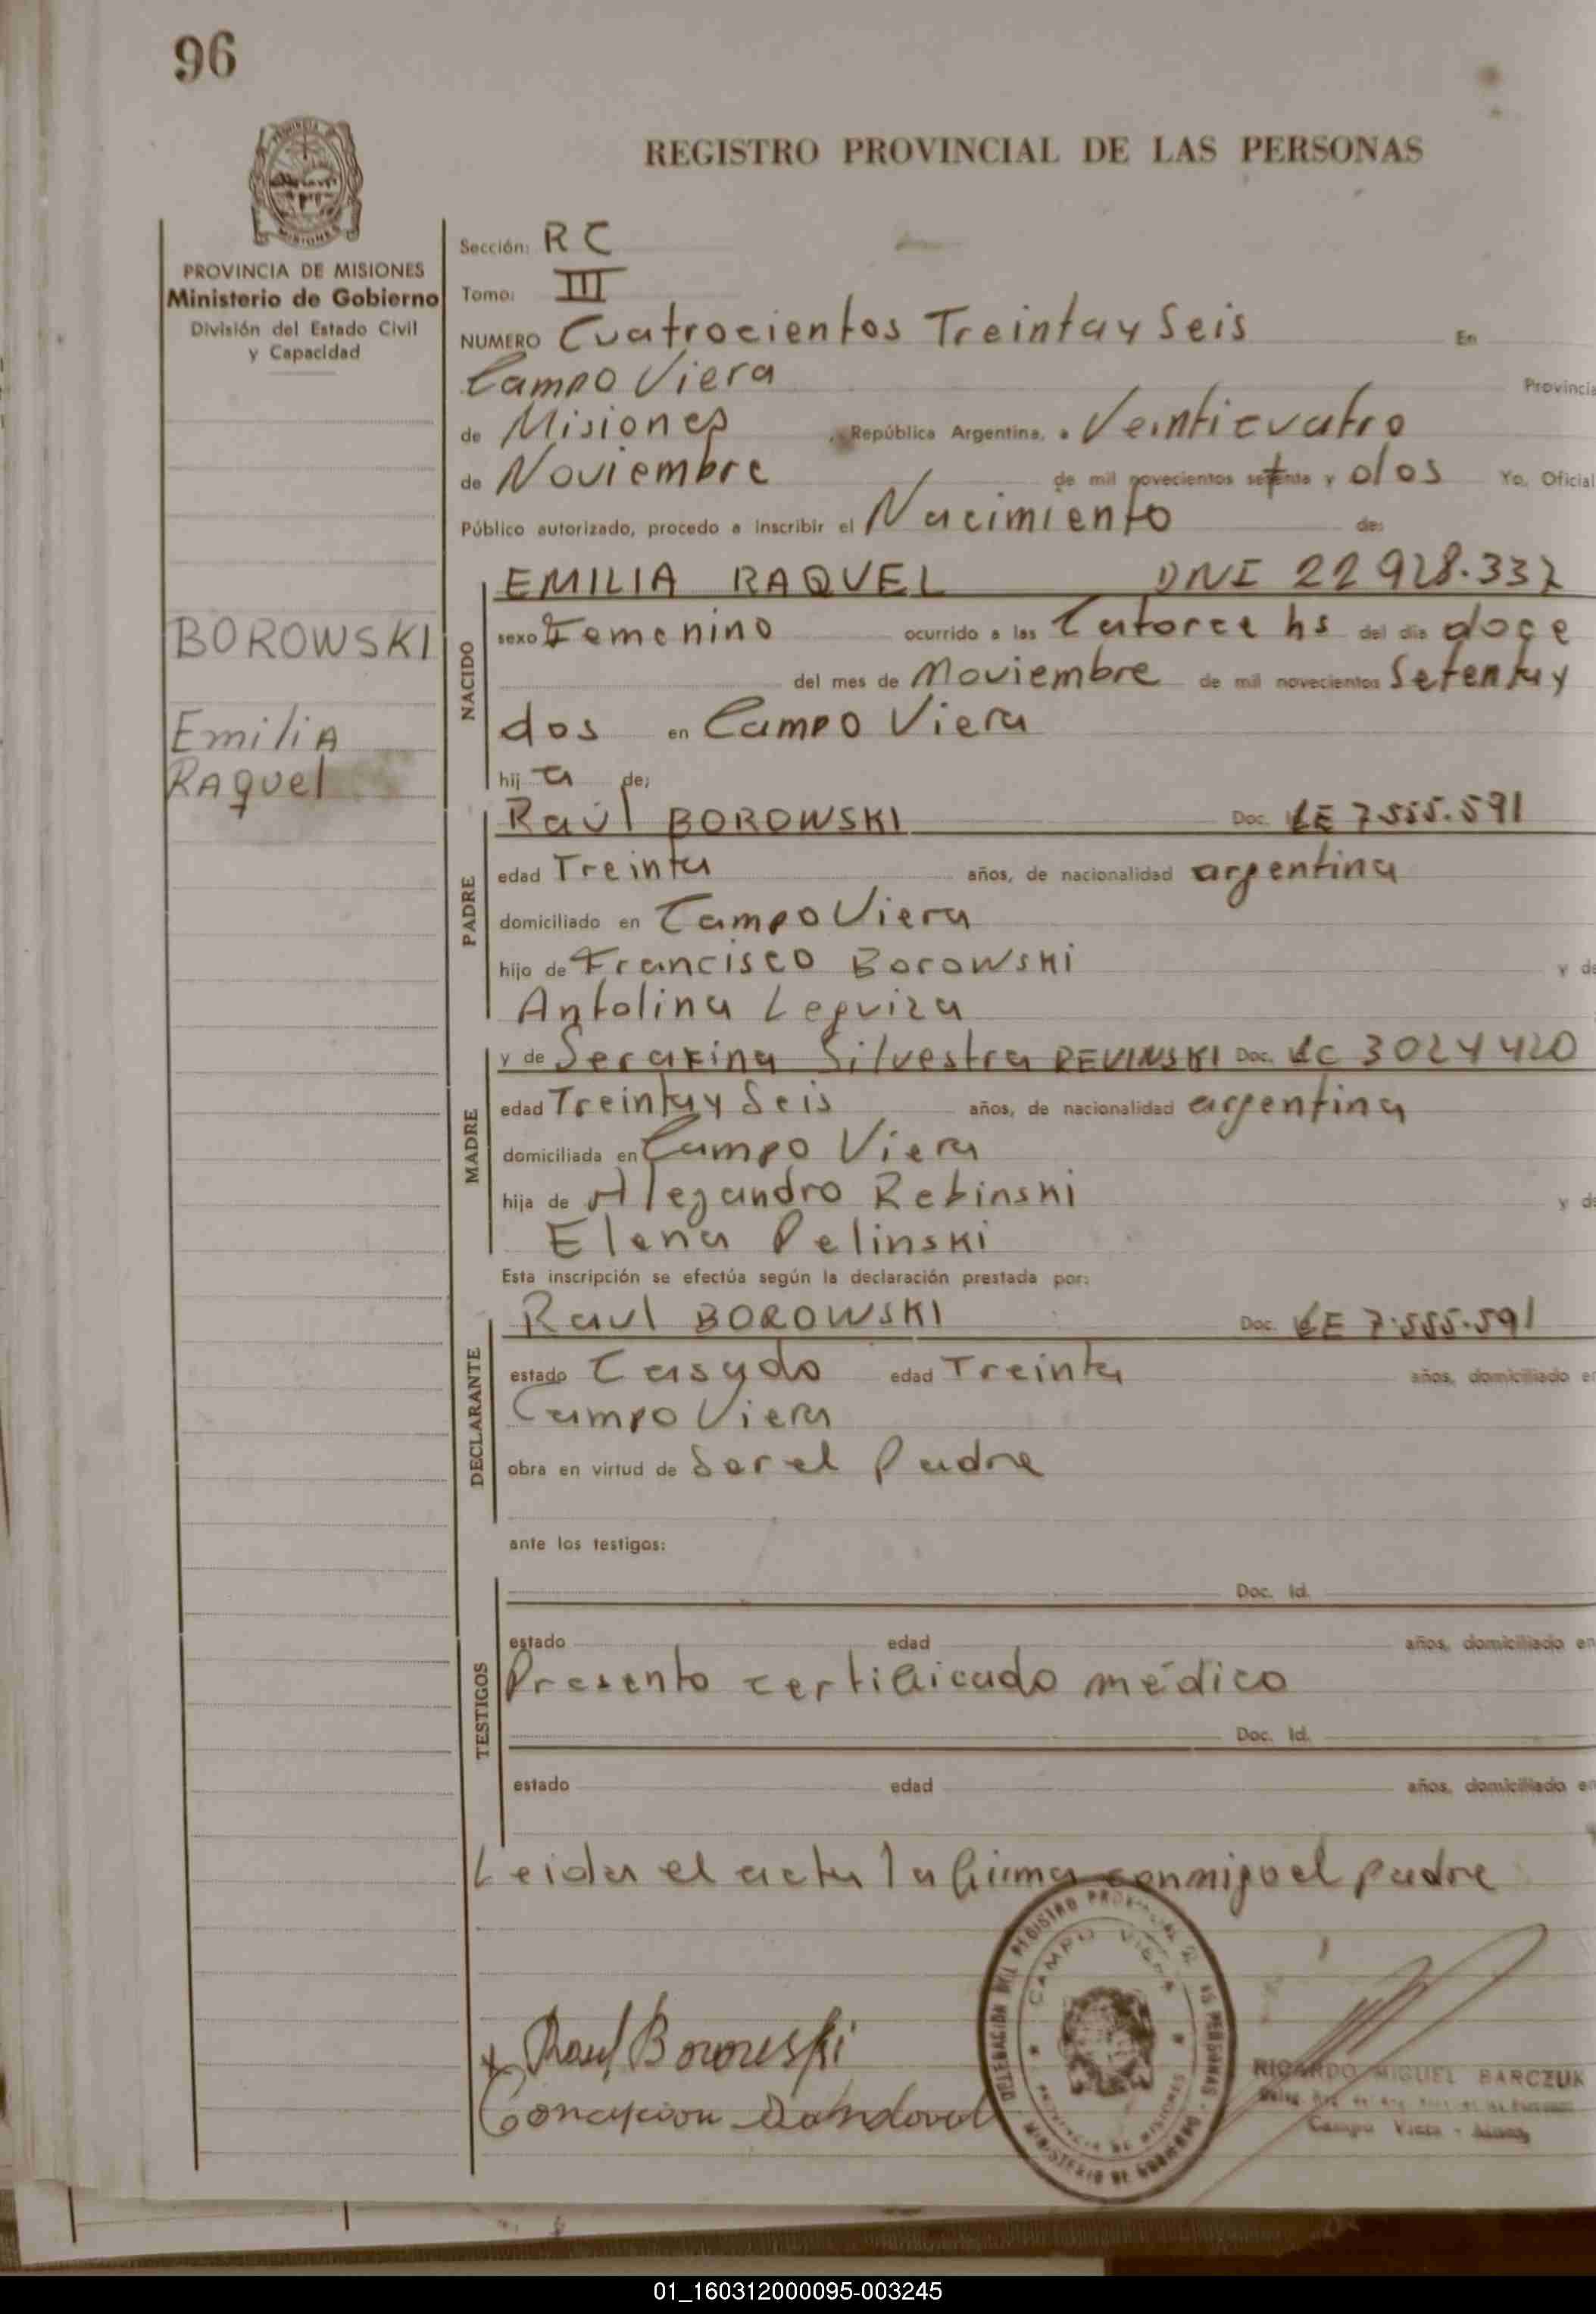 96
REGISTRO PROVINCIAL DE LAS PERSONAS
PROVINCIA DE MISIONES
Ministerio de Gobierno
División del Estado Civil
y Capacidad
BOROWSKI
Emilia
Raquel
Sección: RC
Tomo: III
NUMERO Cuatrocientos Treinta y Seis En
Campo Viera Provincia
de Misiones, República Argentina, a Veinticuatro
de Noviembre de mil novecientos setenta y dos Yo, Oficial
Público autorizado, procedo a inscribir el Nacimiento de:
NACIDO
EMILIA RAQUEL DNI 22 928.337
sexo Femenino ocurrido a las Catorce hs del día doce
del mes de Noviembre de mil novecientos Setenta y
dos en Campo Viera
hij a de:
PADRE
Raúl BOROWSKI Doc. LE 7.555.591
edad Treinta años, de nacionalidad argentina
domiciliado en Campo Viera
hijo de Francisco Borowski y de
Antolina Leguiza
MADRE
y de Serafina Silvestra REVINSKI Doc. LC 3024420
edad Treinta y Seis años, de nacionalidad argentina
domiciliada en Campo Viera
hija de Alejandro Rebinski y de
Elena Pelinski
Esta inscripción se efectúa según la declaración prestada por:
DECLARANTE
Raul BOROWSKI Doc. LE 7.555.591
estado Casado edad Treinta años, domiciliado en
Campo Viera
obra en virtud de Ser el Padre
ante los testigos:
TESTIGOS
Doc. Id.
estado edad años, domiciliado en
Presento certificado médico
Doc. Id.
estado edad años, domiciliado en
Leida el acta la firma conmigo el padre
Raul Borowski
Concepcion Sandoval
DELEGACION DEL REGISTRO PROVINCIAL DE LAS PERSONAS
CAMPO VIERA
PROVINCIA DE MISIONES
MINISTERIO DE GOBIERNO
RICARDO MIGUEL BARCZUK
Campo Viera
01_160312000095-003245